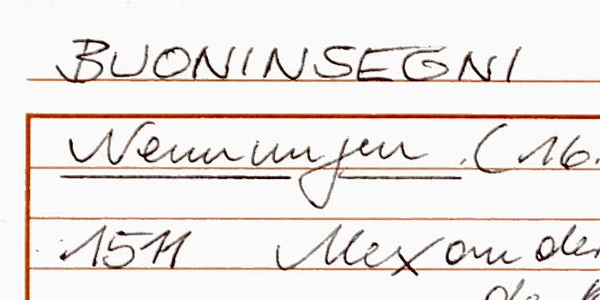 BUONINSEGNI
Nennungen (16.
1511 Alexander
de